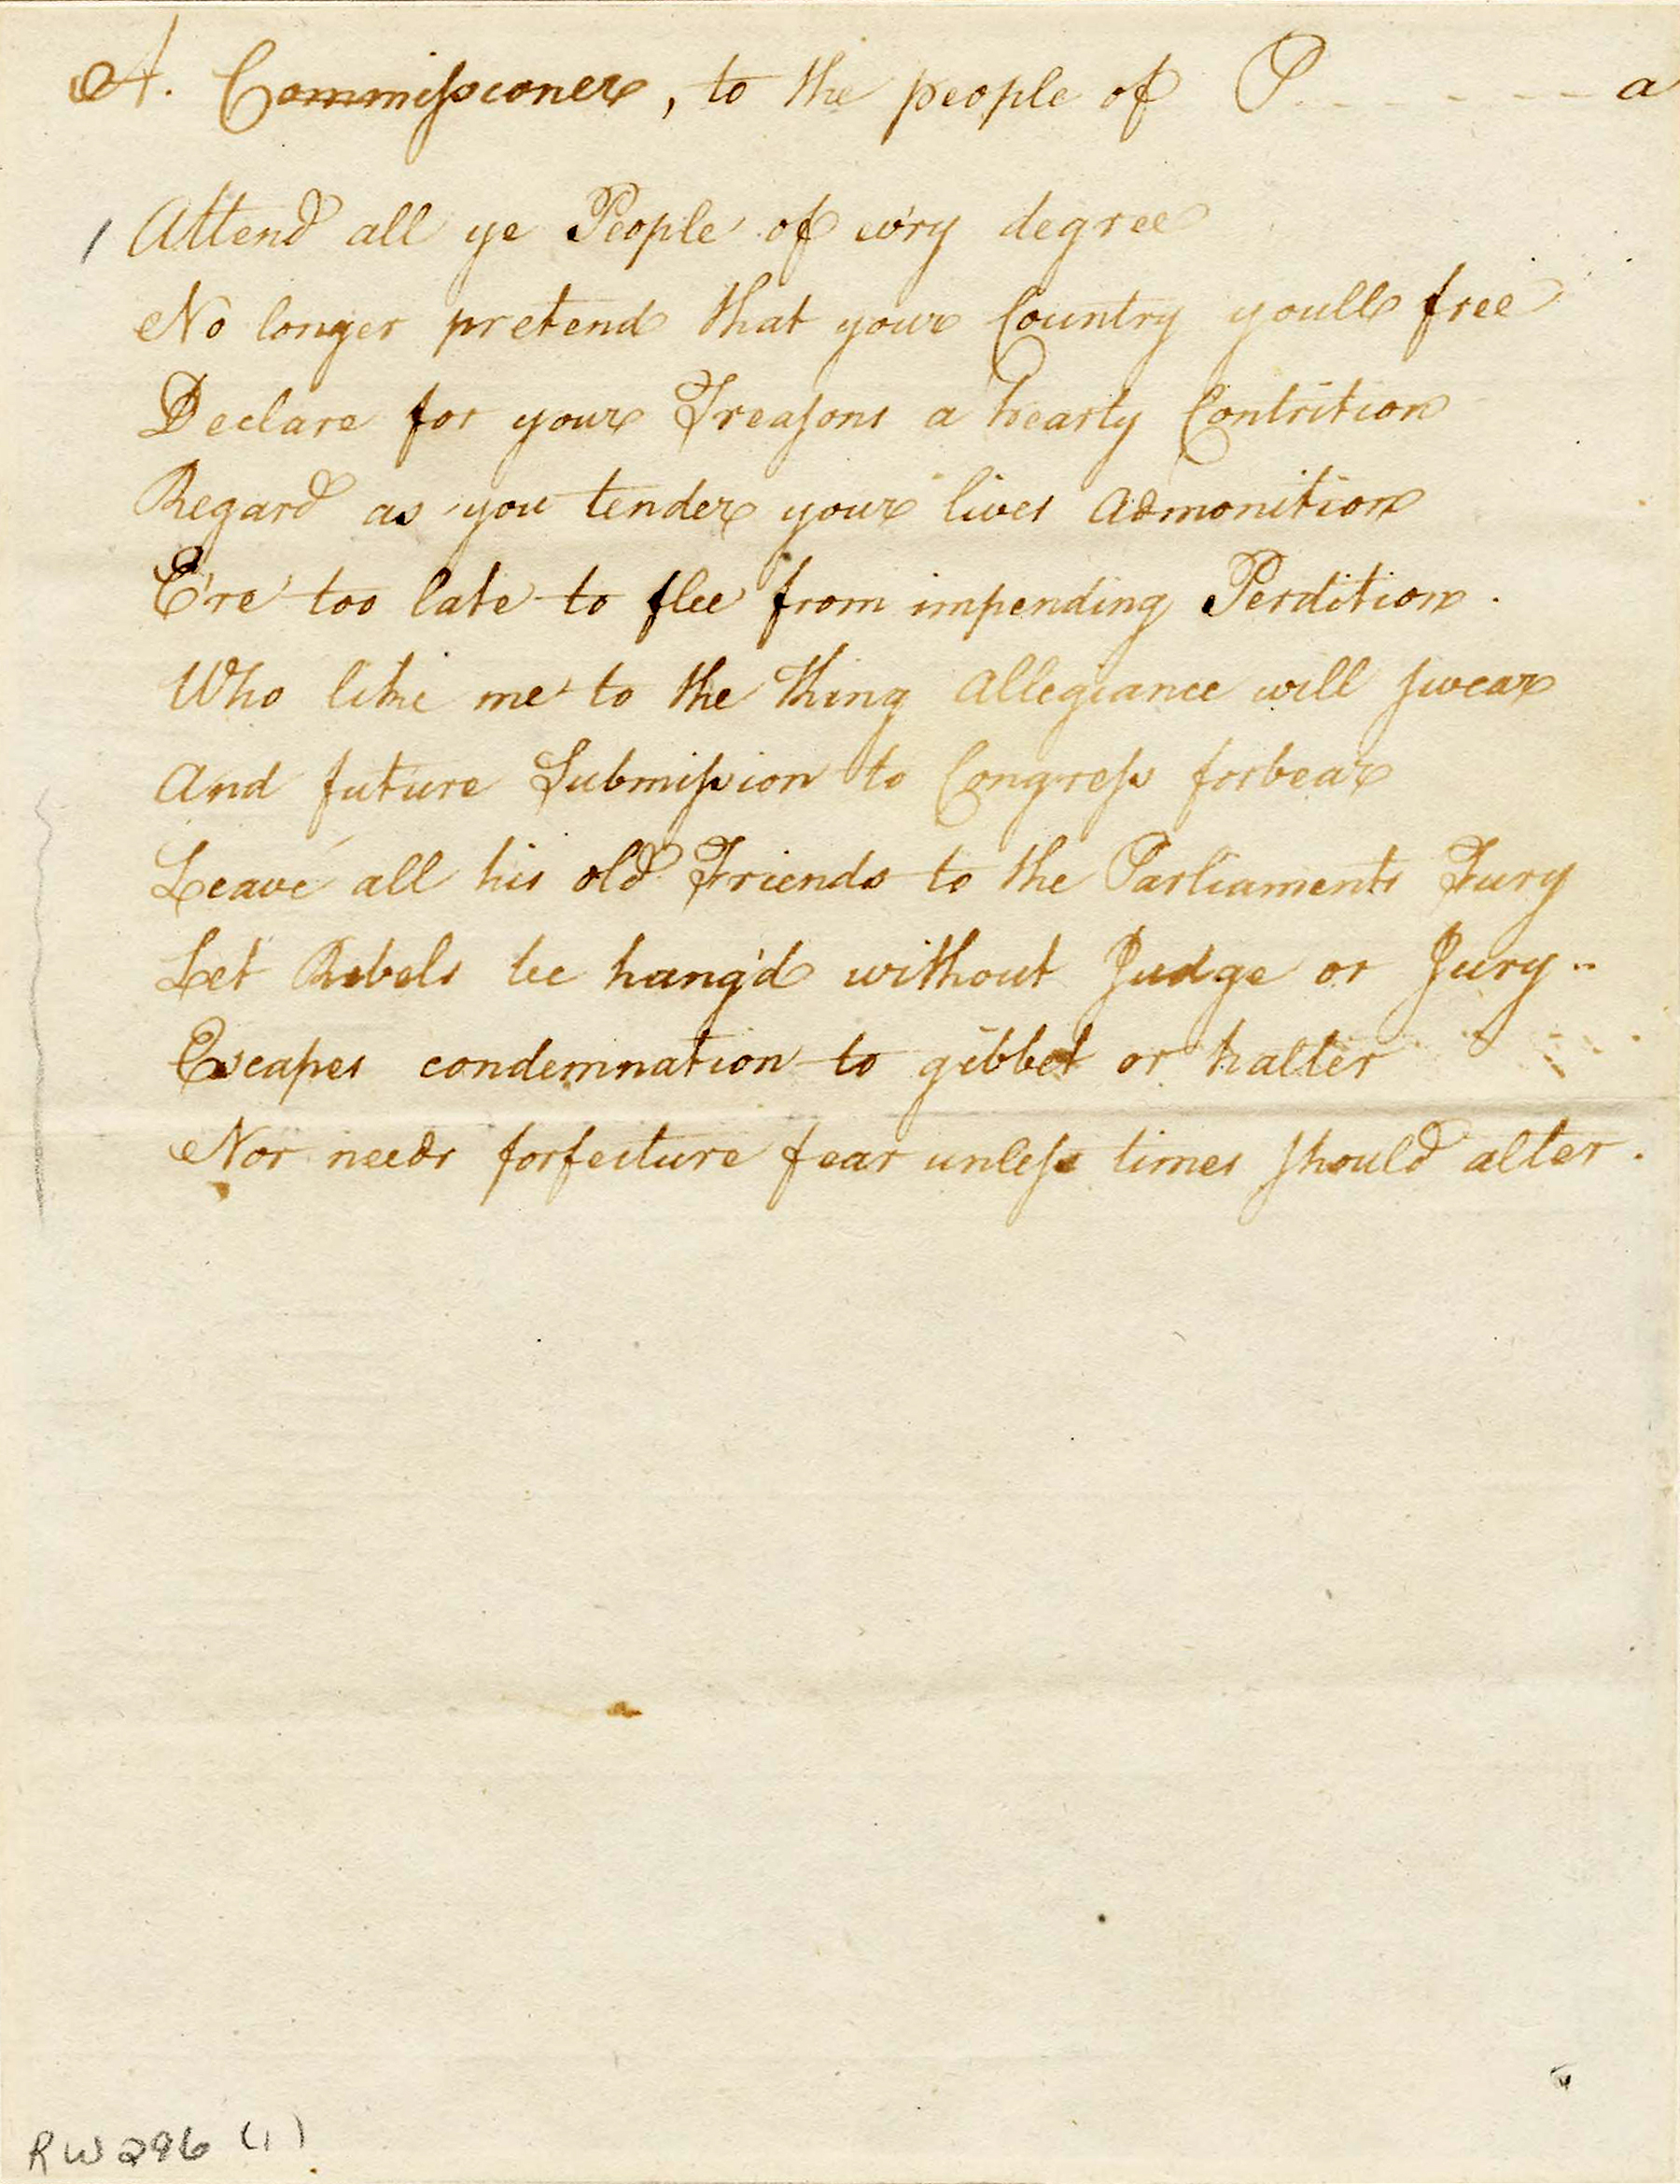 A. Commissioner, to the people of P - - - - - - - a
1 Attend all ye People of ev'ry degree
No longer pretend that your Country youll free
Declare for your Treasons a hearty Contrition
Regard as you tender your lives admonition
E're too late to flee from impending Perdition.
Who like me to the King allegiance will swear
And future Submission to Congress forbear
Leave all his old Friends to the Parliaments Fury
Let Rebels be hang'd without Judge or Jury..
Escapes condemnation to gibbet or halter
Nor needs forfeiture fear unless times should alter.
RW 296 (1)